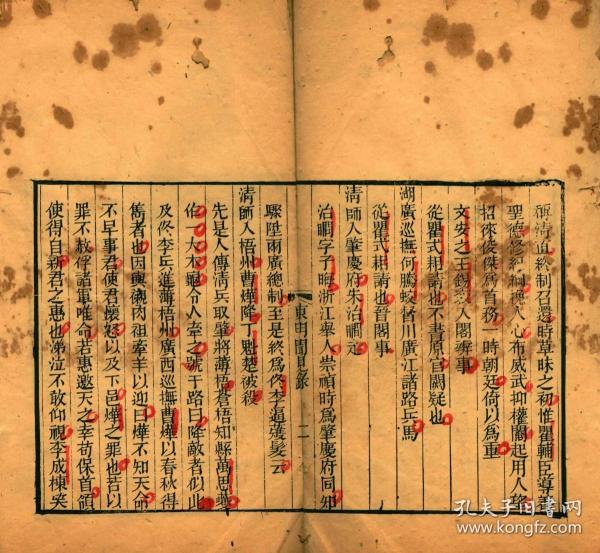 稱清迫終制召還時草昧之初惟瞿輔臣導
聖德修紀綱人心布威武抑權閹起用人
招徠俊傑為首務一時朝廷倚以為重
文安之王錫袞入閣辦事
從瞿式耜請也不書原官闕疑也
湖廣巡撫何騰蛟督川廣江諸路兵馬
從瞿式耜請也晉閣事
清師入肇慶府朱治走
治字子暇浙江舉人崇禎時為肇慶府同知
東明聞見錄 二
驟陞兩廣總制至是終為佟李逼薙髮云
清師入梧州曹燁降丁魁楚被殺
先是人傳清兵取肇將薄梧蒼梧知縣萬思夔
作一大木令人舁之號于路曰降敵者似此
及佟李兵進薄梧州廣西巡撫曹燁以春秋得
雋者也因輿櫬肉袒牽羊以迎曰燁不知天命
不早事君使君懷怒以及下邑燁之罪也若以
罪不赦俘諸軍唯命若惠邀天之幸苟保首領
使得自新君之惠也涕泣不敢仰視李成棟笑
孔夫子旧书网
www.kongfz.com